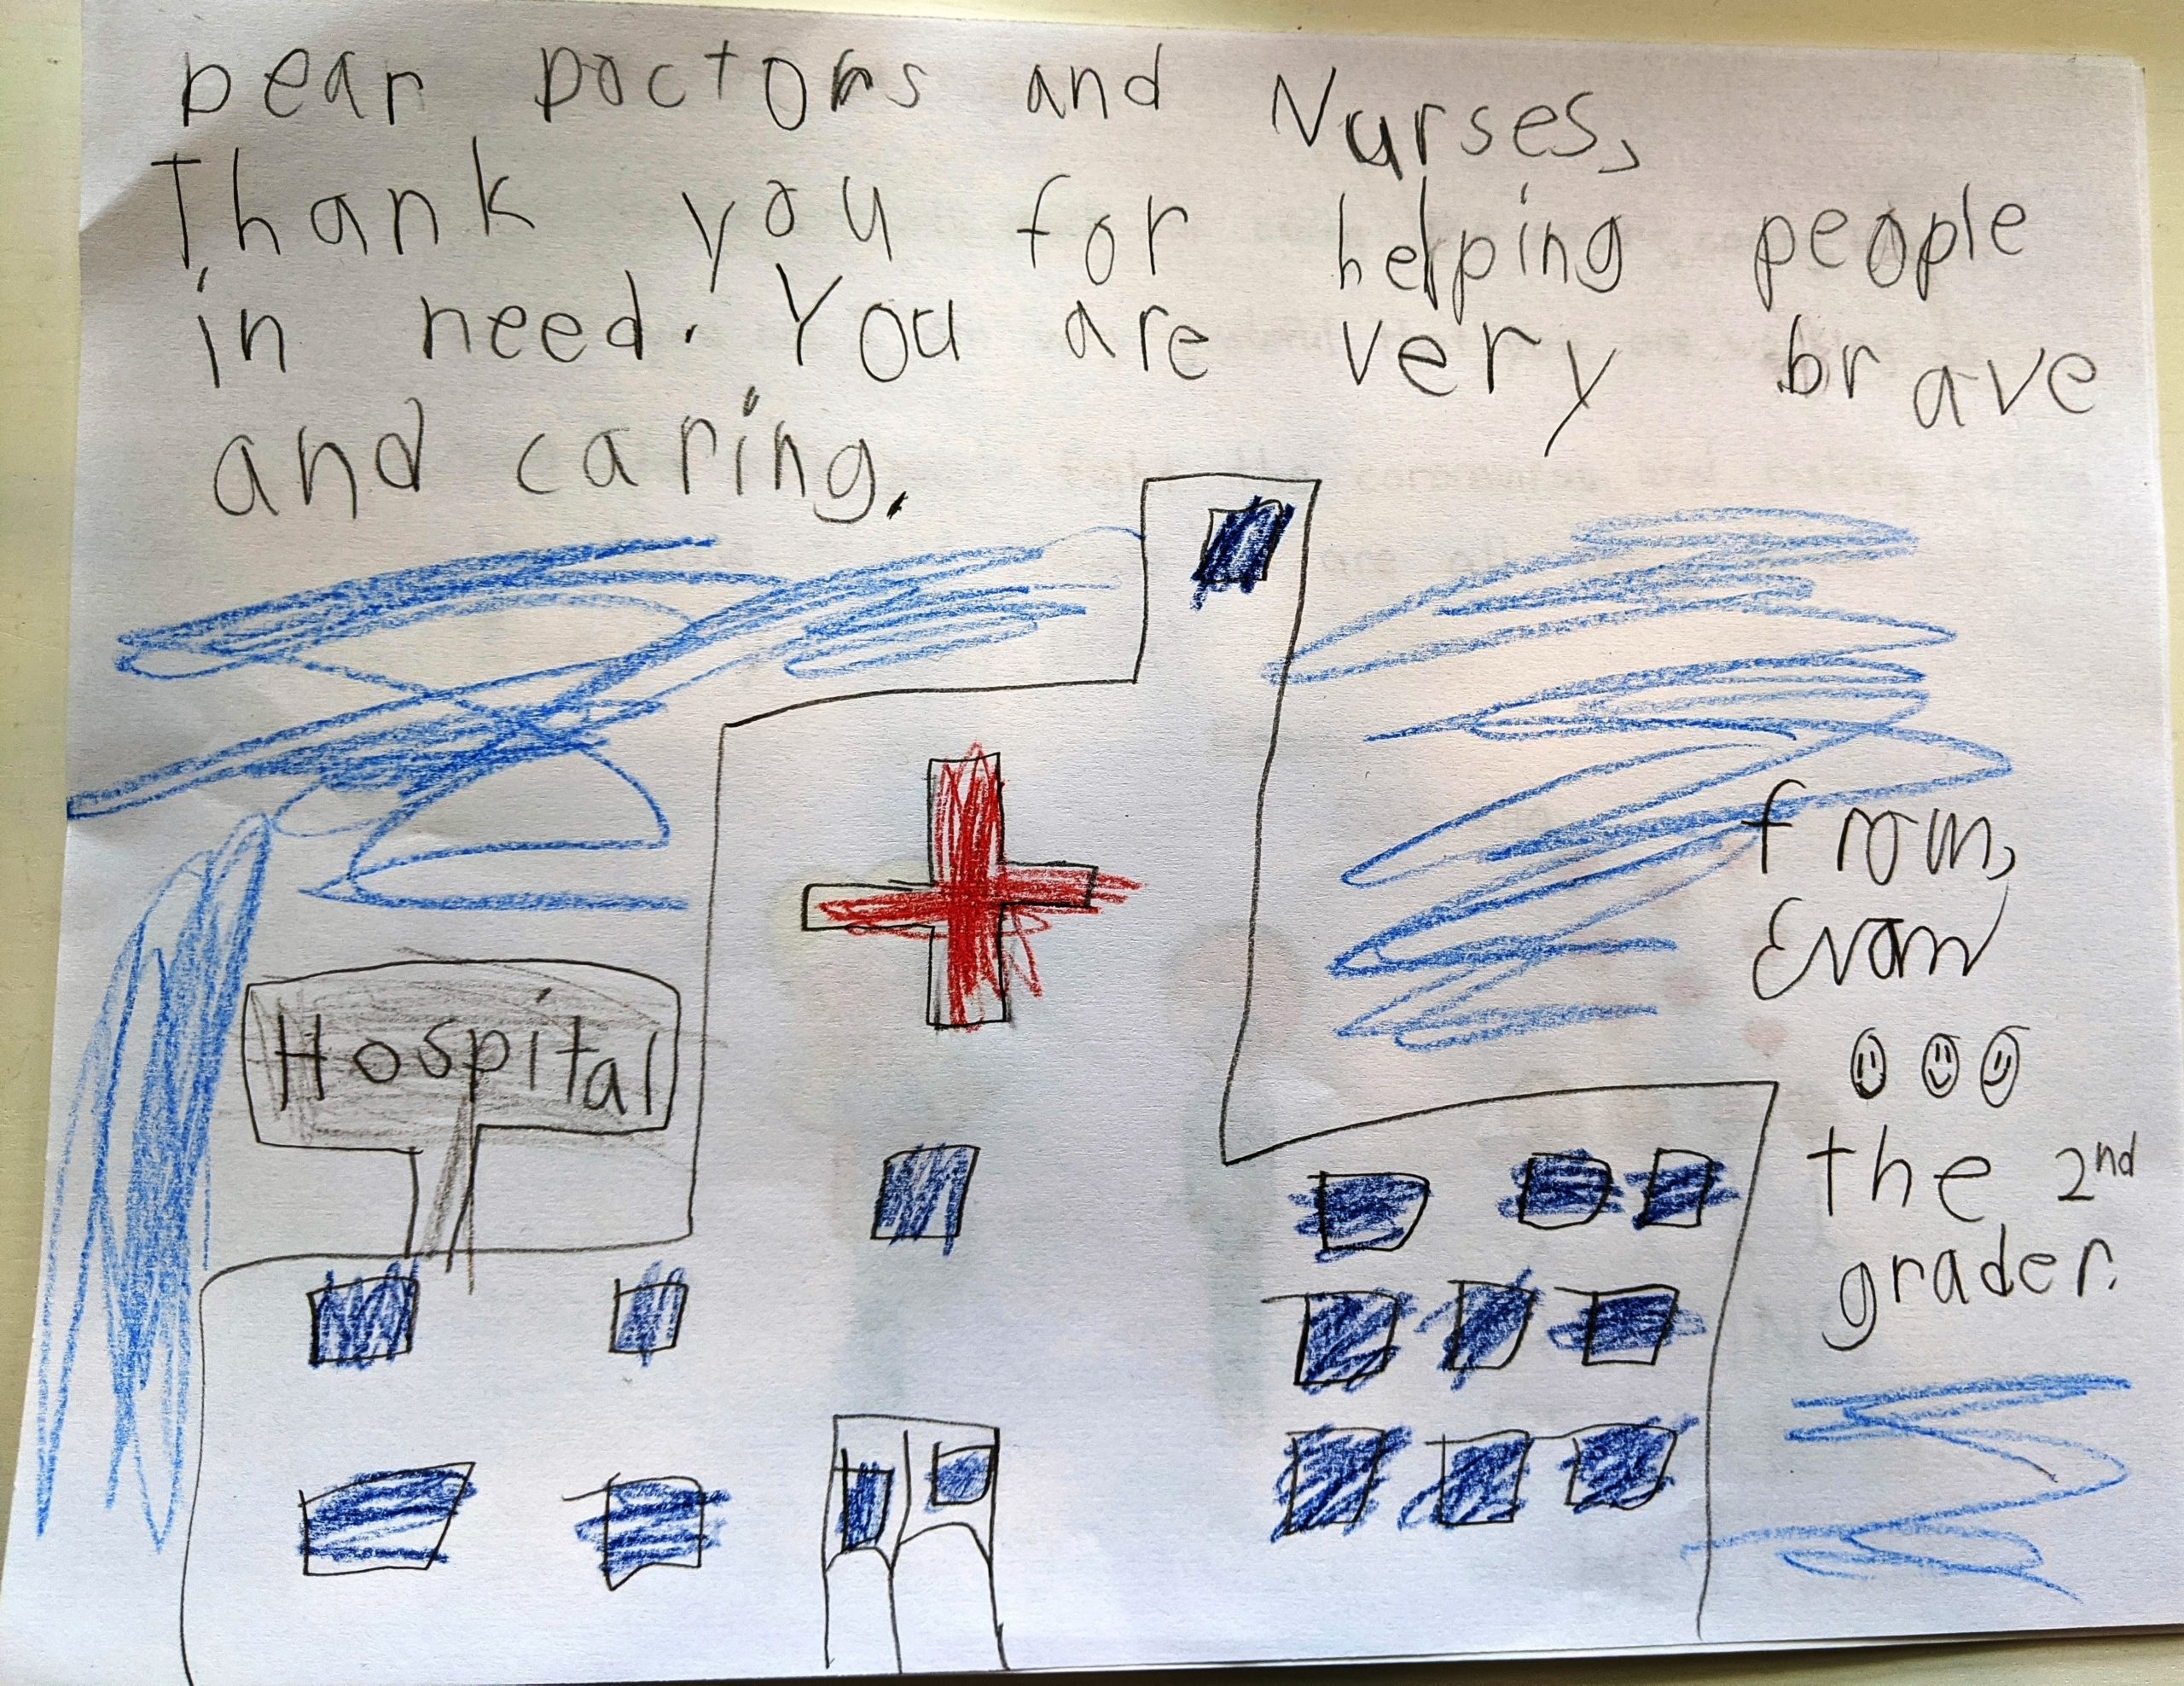 Dear Doctors and Nurses,
Thank you for helping people
in need. You are very brave
and caring.
from,
Evan
Hospital
the 2nd
grader.